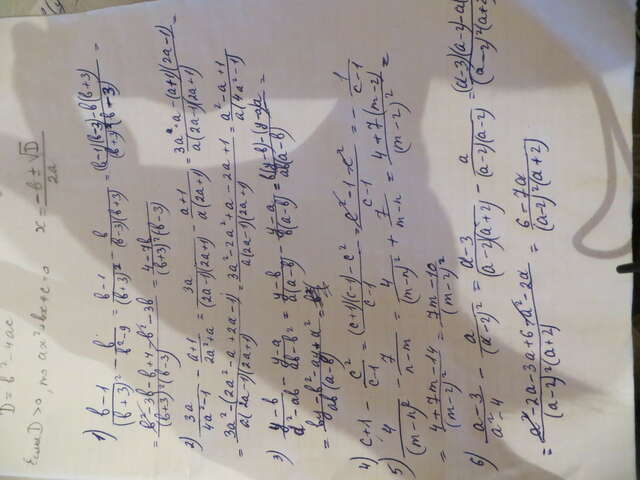 D = b² - 4ac
Если D > 0, то ax² + bx + c = 0 x = (-b ± √D)/2a
1) (b-1)/(b-3)² - b/(b²-9) = (b-1)/(b+3)² - b/((b-3)(b+3)) = ((b-1)(b-3)-b(b+3))/((b+3)²(b-3)) =
= (b²-3b-b+4-b²-3b)/((b+3)²(b-3)) = (4-7b)/((b+3)²(b-3))
2) 3a/(4a²-1) - (a+1)/(2a²+a) = 3a/((2a-1)(2a+1)) - (a+1)/(a(2a+1)) = (3a·a-(a+1)(2a-1))/(a(2a-1)(2a+1)) =
= (3a²-(2a²-a+2a-1))/(a(2a-1)(2a+1)) = (3a²-2a²+a-2a+1)/(a(2a-1)(2a+1)) = (a²-a+1)/(a(4a²-1))
3) (y-b)/(a²-ab) - (y-a)/(ab-b²) = (y-b)/(a(a-b)) - (y-a)/(b(a-b)) =
4) c+1 - c²/(c-1) = ((c+1)(c-1)-c²)/(c-1) = (c²-1-c²)/(c-1) = -1/(c-1)
5) 4/(m-n)² - 7/(n-m) = 4/(m-n)² + 7/(m-n) = (4+7(m-2))/(m-2)² =
= (4+7m-14)/(m-2)² = (7m-10)/(m-2)²
6) (a-3)/(a²-4) - a/(a-2)² = (a-3)/((a-2)(a+2)) - a/((a-2)(a-2)) =
= (a²-2a-3a+6-a²-2a)/((a-2)²(a+2)) = (6-7a)/((a-2)²(a+2))